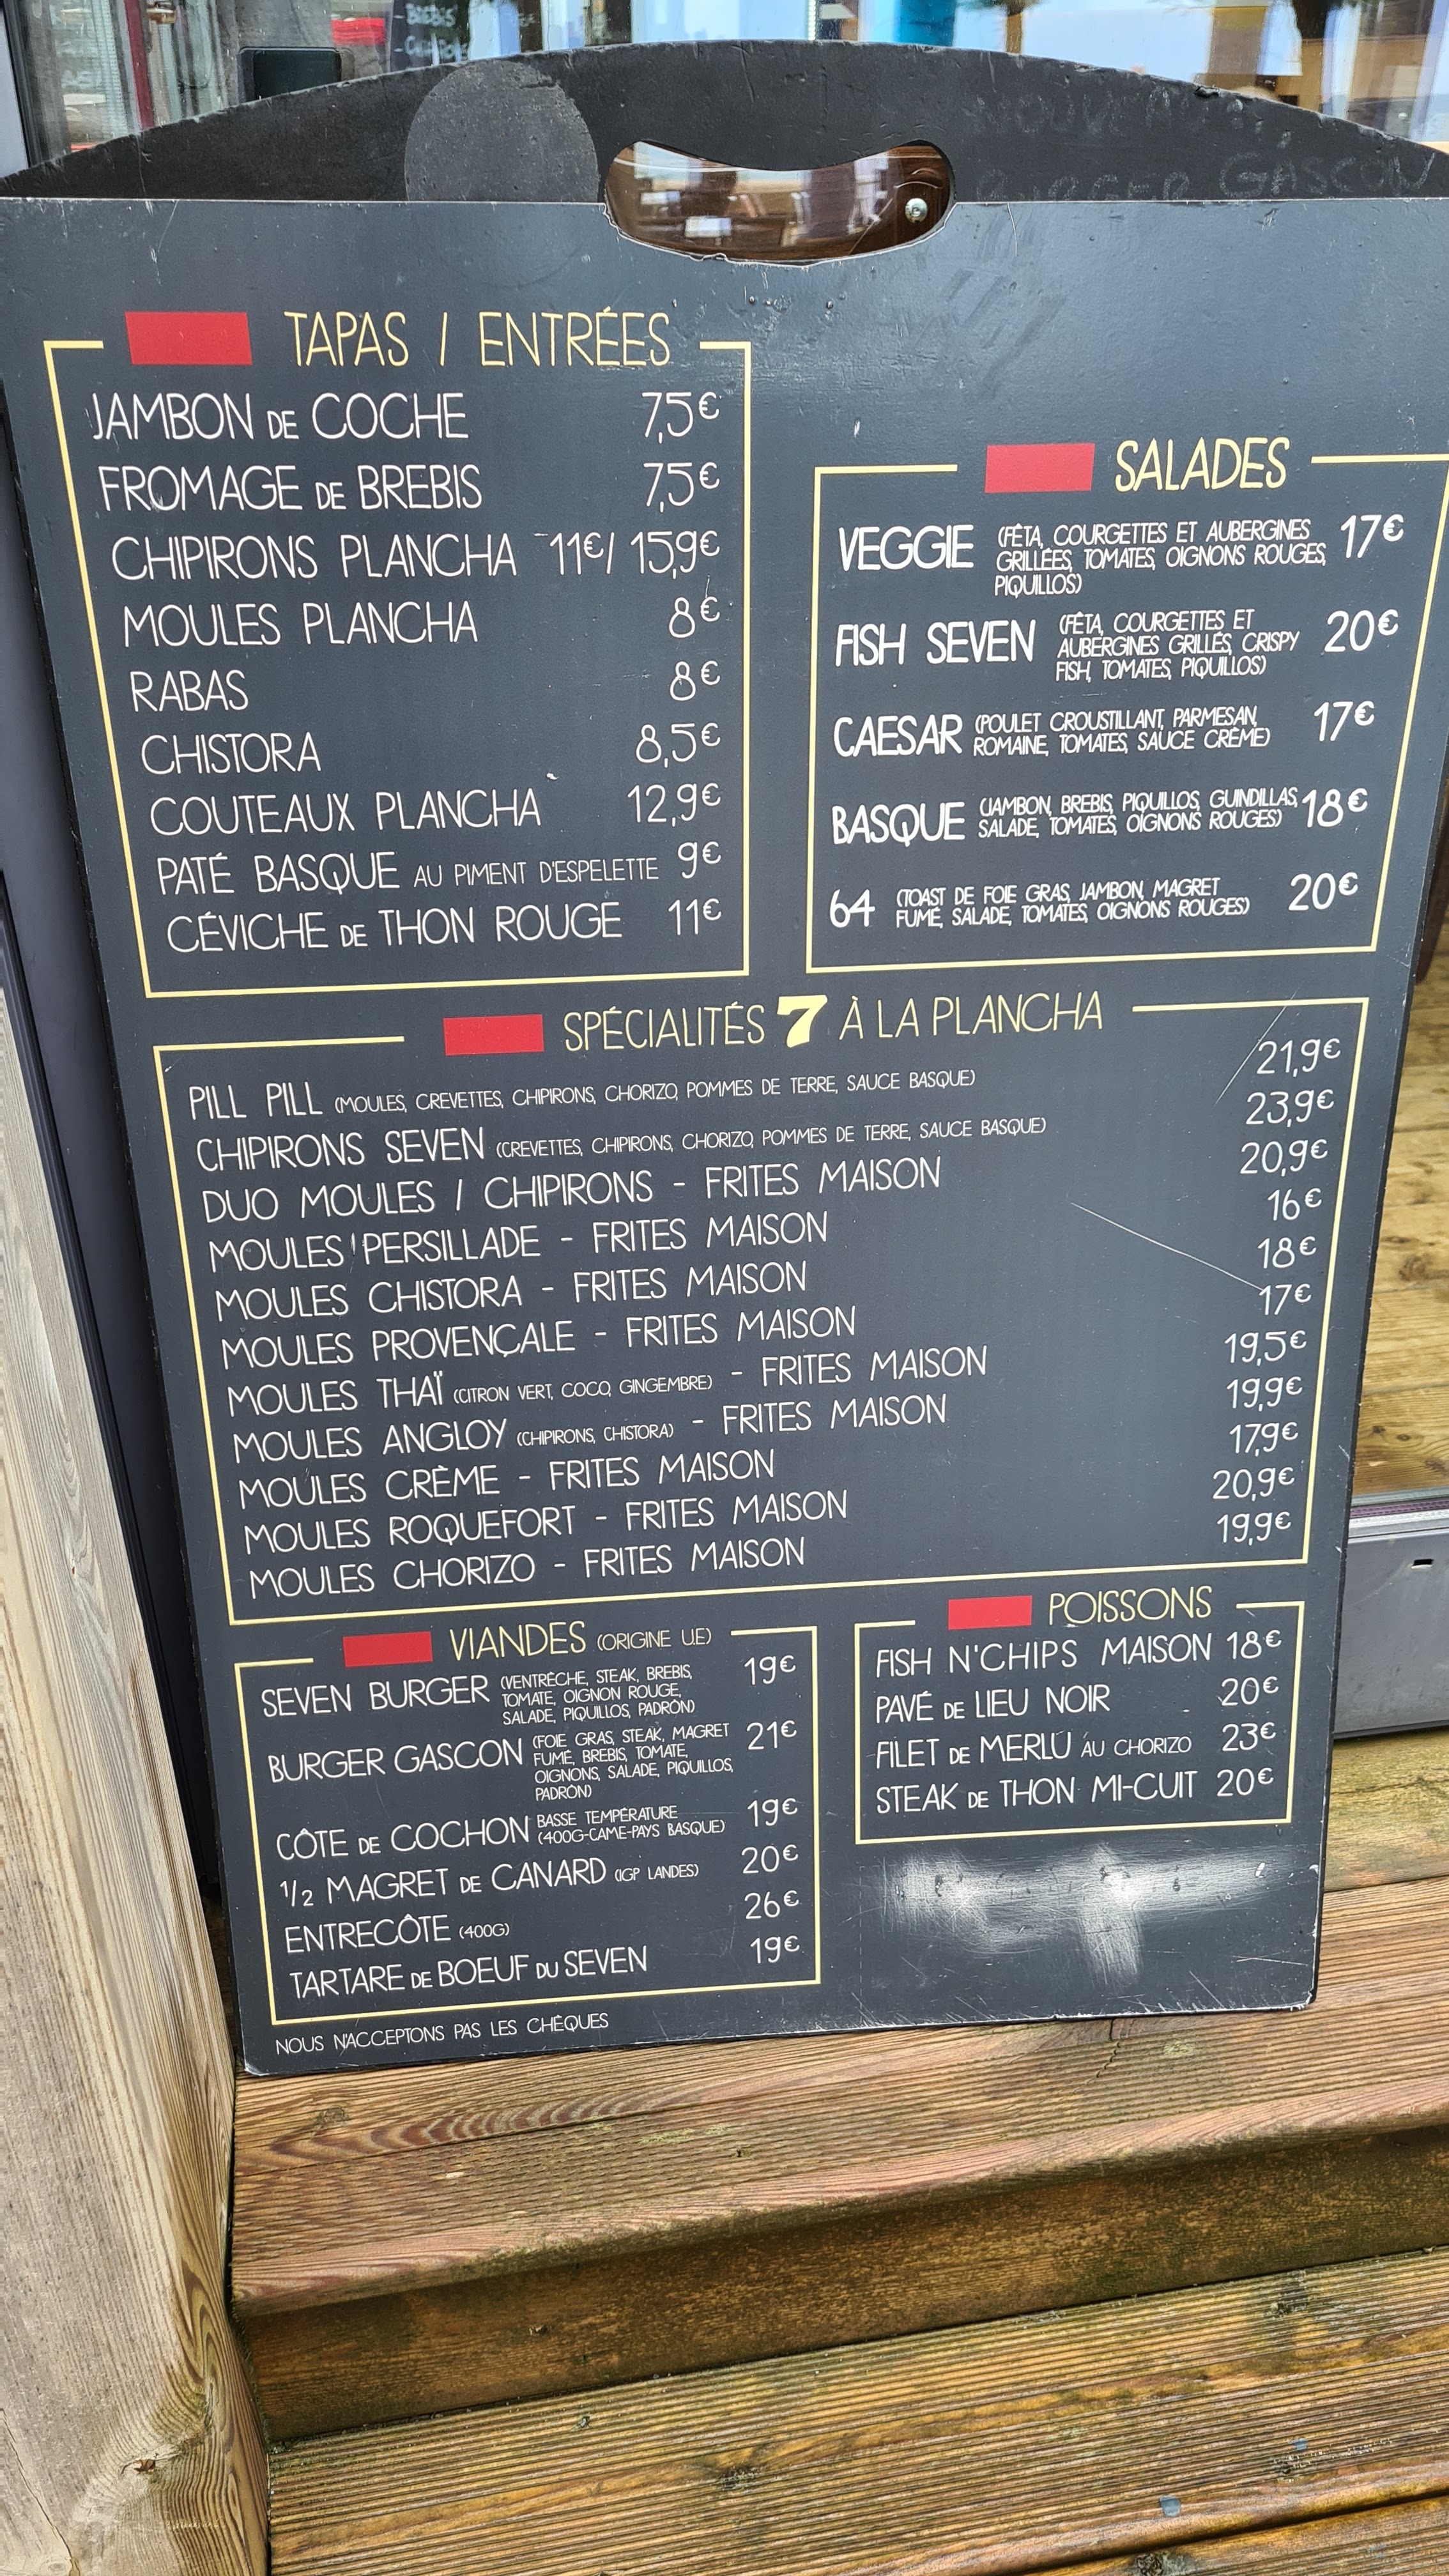 NOUVEAU
BURGER GASCON
TAPAS / ENTRÉES
JAMBON DE COCHE 7,5€
FROMAGE DE BREBIS 7,5€
CHIPIRONS PLANCHA 11€/ 15,9€
MOULES PLANCHA 8€
RABAS 8€
CHISTORA 8,5€
COUTEAUX PLANCHA 12,9€
PATÉ BASQUE AU PIMENT D'ESPELETTE 9€
CÉVICHE DE THON ROUGE 11€
SALADES
VEGGIE (FÊTA, COURGETTES ET AUBERGINES 17€
GRILLÉES, TOMATES, OIGNONS ROUGES,
PIQUILLOS)
FISH SEVEN (FÊTA, COURGETTES ET 20€
AUBERGINES GRILLÉS, CRISPY
FISH, TOMATES, PIQUILLOS)
CAESAR (POULET CROUSTILLANT, PARMESAN, 17€
ROMAINE, TOMATES, SAUCE CRÈME)
BASQUE (JAMBON, BREBIS, PIQUILLOS, GUINDILLAS, 18€
SALADE, TOMATES, OIGNONS ROUGES)
64 (TOAST DE FOIE GRAS, JAMBON, MAGRET 20€
FUMÉ, SALADE, TOMATES, OIGNONS ROUGES)
SPÉCIALITÉS 7 À LA PLANCHA
PILL PILL (MOULES, CREVETTES, CHIPIRONS, CHORIZO, POMMES DE TERRE, SAUCE BASQUE) 21,9€
CHIPIRONS SEVEN (CREVETTES, CHIPIRONS, CHORIZO, POMMES DE TERRE, SAUCE BASQUE) 23,9€
DUO MOULES / CHIPIRONS - FRITES MAISON 20,9€
MOULES PERSILLADE - FRITES MAISON 16€
MOULES CHISTORA - FRITES MAISON 18€
MOULES PROVENÇALE - FRITES MAISON 17€
MOULES THAÏ (CITRON VERT, COCO, GINGEMBRE) - FRITES MAISON 19,5€
MOULES ANGLOY (CHIPIRONS, CHISTORA) - FRITES MAISON 19,9€
MOULES CRÈME - FRITES MAISON 17,9€
MOULES ROQUEFORT - FRITES MAISON 20,9€
MOULES CHORIZO - FRITES MAISON 19,9€
VIANDES (ORIGINE U.E)
SEVEN BURGER (VENTRÈCHE, STEAK, BREBIS, 19€
TOMATE, OIGNON ROUGE,
SALADE, PIQUILLOS, PADRÓN)
BURGER GASCON (FOIE GRAS, STEAK, MAGRET 21€
FUMÉ, BREBIS, TOMATE,
OIGNONS, SALADE, PIQUILLOS,
PADRÓN)
CÔTE DE COCHON BASSE TEMPÉRATURE 19€
(400G-CAME-PAYS BASQUE)
1/2 MAGRET DE CANARD (IGP LANDES) 20€
ENTRECÔTE (400G) 26€
TARTARE DE BOEUF DU SEVEN 19€
POISSONS
FISH N'CHIPS MAISON 18€
PAVÉ DE LIEU NOIR 20€
FILET DE MERLU AU CHORIZO 23€
STEAK DE THON MI-CUIT 20€
NOUS N'ACCEPTONS PAS LES CHÈQUES